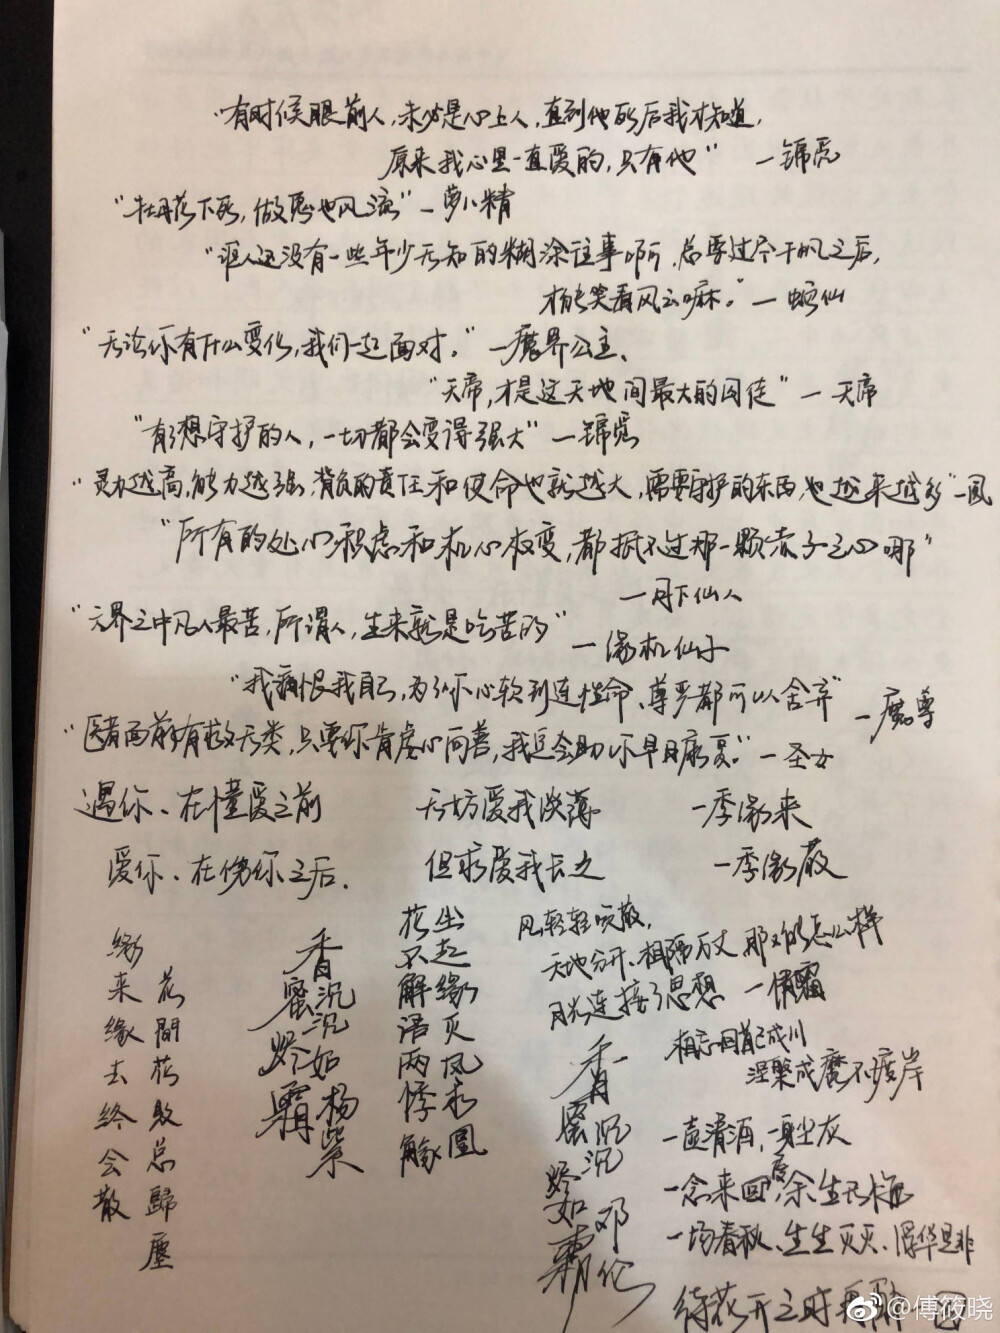 “有时候眼前人，未必是心上人，直到他死后我才知道，
原来我心里一直爱的，只有他” 一锦觅
“牡丹花下死，做鬼也风流” 一萝卜精
“谁人还没有一些年少无知的糊涂往事啊，总要过尽千帆之后，
才能笑看风云嘛。” 一蛇仙
“无论你有什么变化，我们一起面对。” 一魔界公主、
“天帝，才是这天地间最大的囚徒” 一天帝
“有了想守护的人，一切都会变得强大” 一锦觅
“灵力越高，能力越强，背负的责任和使命也就越大，需要守护的东西，也越来越多” 一凤
“所有的处心积虑和机心权变，都抵不过那一颗赤子之心哪”
一月下仙人
“六界之中凡人最苦，所谓人，生来就是吃苦的”
一缘机仙子
“我痛恨我自己，为你心软到连性命、尊严都可以舍弃”
一魔尊
“医者面前有救无类，只要你肯虚心向善，我定会助你早日康复。” 一圣女
遇你、在懂爱之前 无妨爱我淡薄 一季缘来
爱你、在伤你之后. 但求爱我长久 一季缘散
缘来缘去终会散
花開花败总歸塵
香蜜沉沉烬如霜
杨紫
花不解语两悖觞
尘起缘灭凤求凰
风轻轻吹散，
天地分开、相隔万丈，那又能怎么样
月光连接了思想 一倩霜
香蜜沉沉烬如霜
邓伦
相忘回首已成川
涅槃成魔不渡岸
一壶清酒，一身尘灰
一念来回度余生无悔
一场春秋、生生灭灭、浮华是非
待花开之时再
@傅筱晓